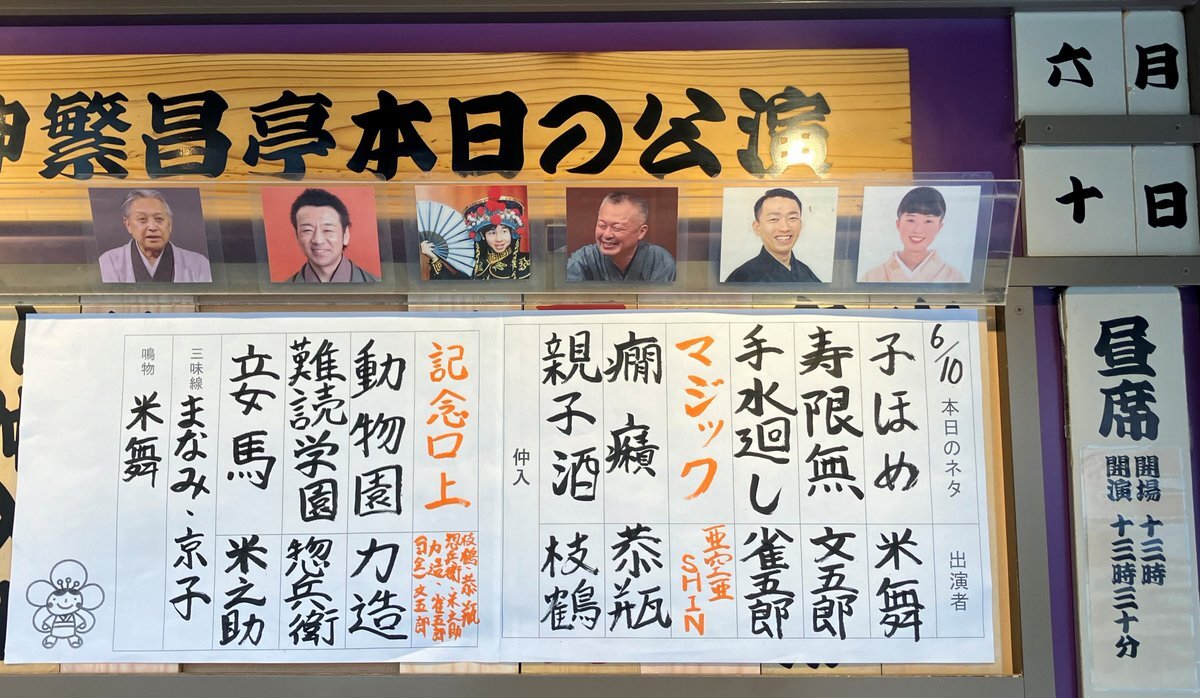 繁昌亭本日の公演
六月
十日
昼席
開場 十三時
開演 十三時三十分
6/10 本日のネタ 出演者
子ほめ 米舞
寿限無 文五郎
手水廻し 雀五郎
マジック 亜空亜SHIN
癇癪 恭瓶
親子酒 枝鶴
仲入
記念口上
枝鶴・恭瓶
惣兵衛・米之助
力造・雀五郎
(司会)文五郎
動物園 力造
難読学園 惣兵衛
妾馬 米之助
三味線 まなみ・京子
鳴物 米舞